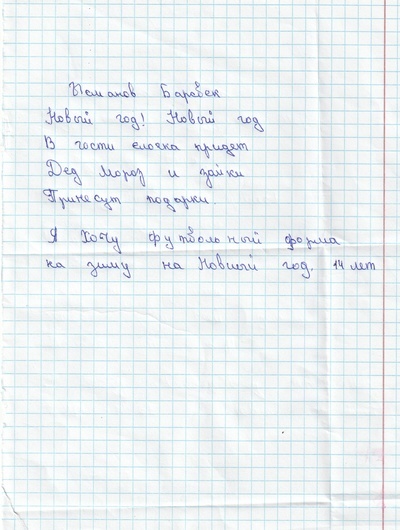 Усманов Барсбек
Новый год! Новый год
В гости ёлочка придет
Дед Мороз и зайки
Принесут подарки.
Я Хочу футбольный форма
на зиму на Новый год. 14 лет